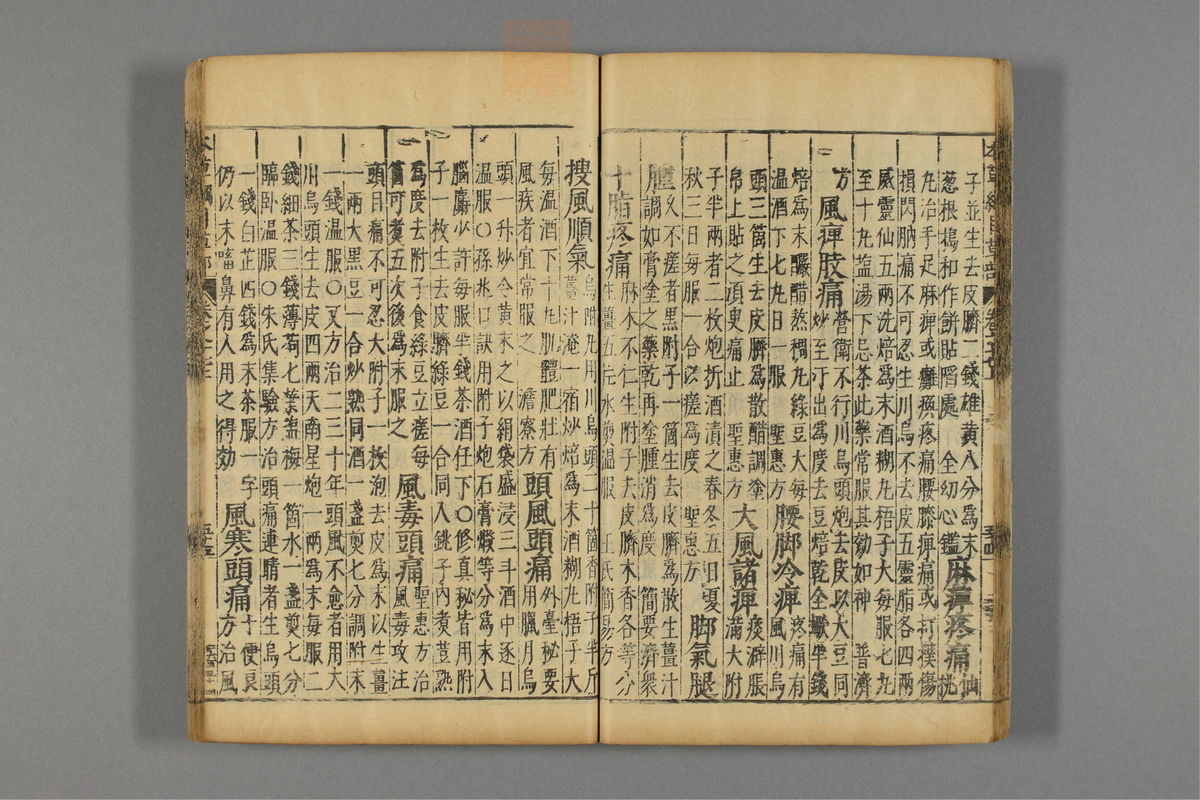 子並生去皮臍二錢雄黃八分為末
葱根搗和作餅貼暗處 全幼心鑑 麻痺疼痛 仙桃
丸治手足麻痺或癱瘓疼痛腰膝痺痛或打撲傷
損閃肭痛不可忍生川烏不去皮五靈脂各四兩
威靈仙五兩洗焙為末酒糊丸梧子大每服七丸
至十丸盐湯下忌茶此藥常服其効如神 普濟
方 風痺肢痛 營衛不行川烏頭炮去皮以大豆同
炒至汗出為度去豆焙乾全蠍半錢
焙為末釅醋熬稠丸綠豆大每
溫酒下七丸日一服 聖惠方 腰脚冷痺 疼痛有
風川烏
頭三箇生去皮臍為散醋調塗
帛上貼之須臾痛止 聖惠方 大風諸痺 痰澼脹
滿大附
子半兩者二枚炮拆酒漬之春冬五日夏
秋三日每服一合以瘥為度 聖惠方 脚氣腿
腫 久不瘥者黑附子一箇生去皮臍為散生薑汁
調如膏塗之藥乾再塗腫消為度 簡要濟衆
十指疼痛 麻木不仁生附子去皮臍木香各等分
生薑五片水煎溫服 王氏簡易方
搜風順氣 烏附丸用川烏頭二十箇香附子半斤
薑汁淹一宿炒焙為末酒糊丸梧子大
每溫酒下十丸肌體肥壯有
風疾者宜常服之 澹寮方 頭風頭痛 外臺秘要
用臘月烏
頭一升炒令黃末之以絹袋盛浸三斗酒中逐日
溫服○孫兆口訣用附子炮石膏煅等分為末入
腦麝少許每服半錢茶酒任下○修真秘旨用附
子一枚生去皮臍綠豆一合同入銚子內煮豆熟
為度去附子食綠豆立瘥每
箇可煮五次後為末服之 風毒頭痛 聖惠方治
風毒攻注
頭目痛不可忍大附子一枚泡去皮為末以生薑
一兩大黑豆一合炒熟同酒一盞煎七分調附末
一錢溫服○又方治二三十年頭風不愈者用大
川烏頭生去皮四兩天南星炮一兩為末每服二
錢細茶三錢薄荷七葉盐梅一箇水一盞煎七分
臨卧溫服○朱氏集驗方治頭痛連睛者生烏頭
一錢白芷四錢為末茶服一字
仍以末㗜鼻有人用之得効 風寒頭痛 十便良
方治風